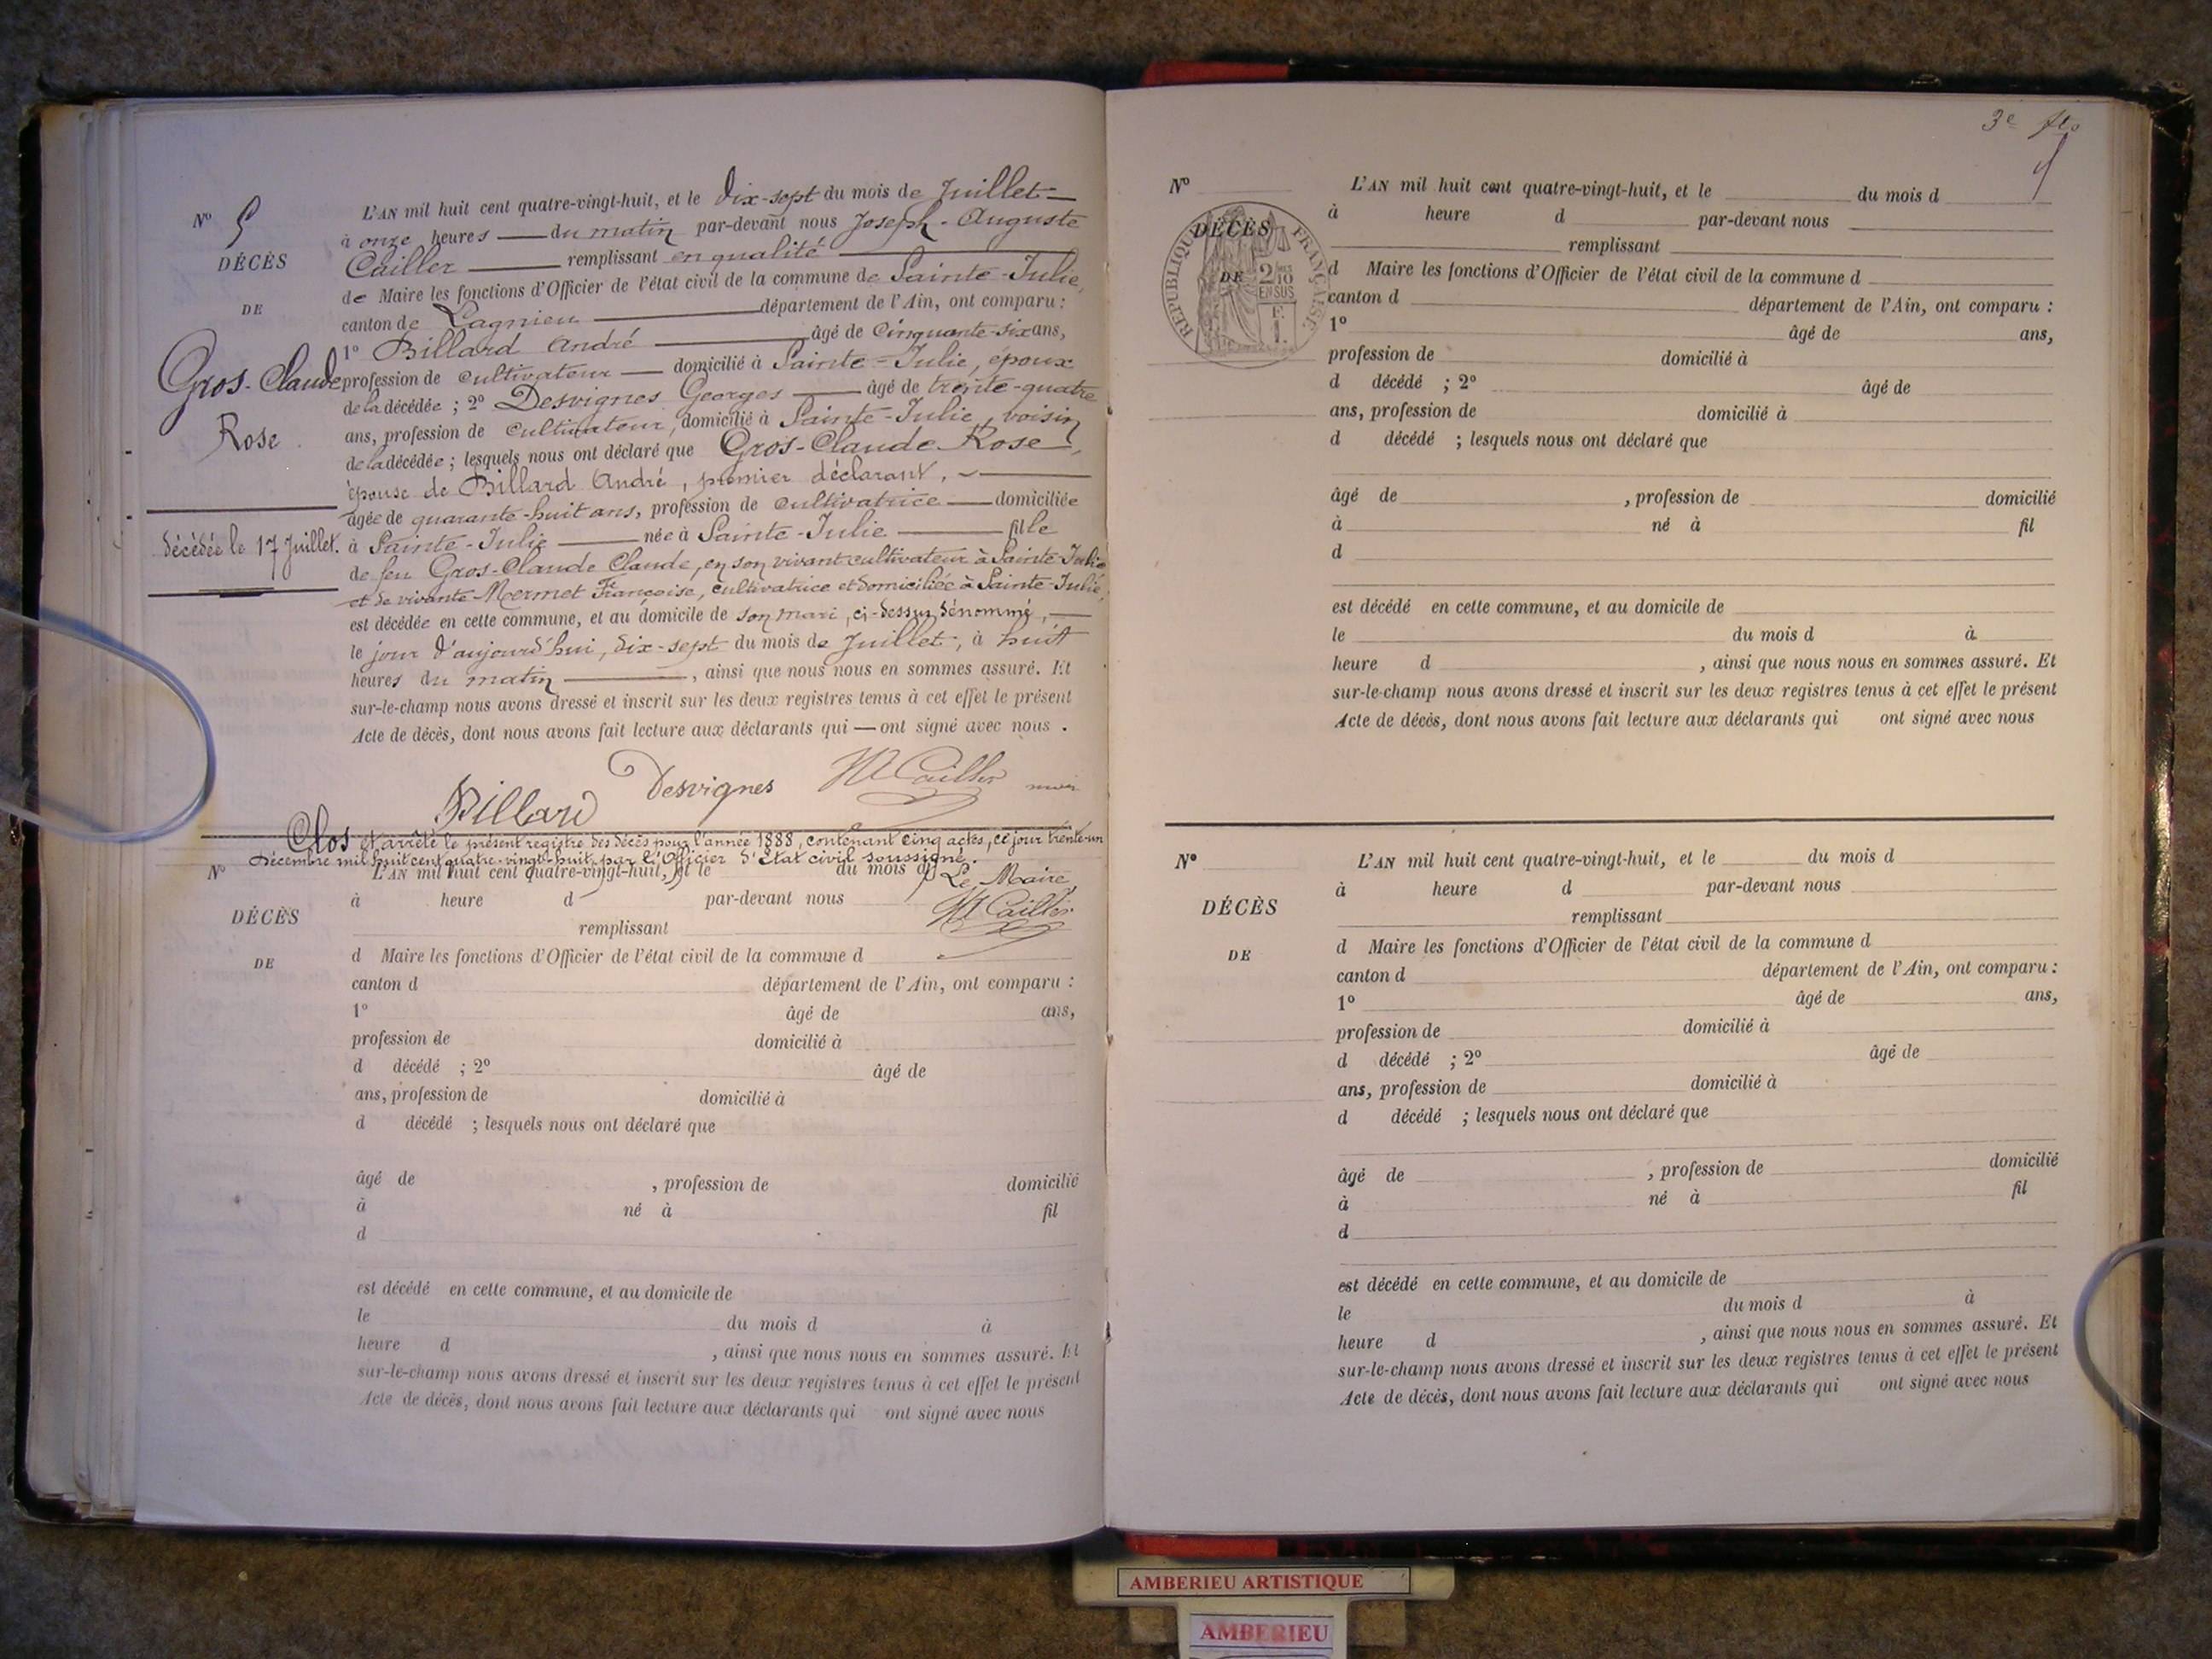 N° 5
DÉCÈS
DE
Gros-Claude
Rose
décédée le 17 Juillet.
L'AN mil huit cent quatre-vingt-huit, et le dix-sept du mois de Juillet
à onze heures du matin par-devant nous Joseph-Auguste
Cailler remplissant en qualité
de Maire les fonctions d'Officier de l'état civil de la commune de Sainte-Julie,
canton de Lagnieu département de l'Ain, ont comparu :
1° Billard André âgé de Cinquante-six ans,
profession de cultivateur domicilié à Sainte-Julie, époux
de la décédée ; 2° Desvignes Georges âgé de trente-quatre
ans, profession de Cultivateur, domicilié à Sainte-Julie, voisin
de la décédée ; lesquels nous ont déclaré que Gros-Claude Rose,
épouse de Billard André, premier déclarant,
âgée de quarante-huit ans, profession de cultivatrice domiciliée
à Sainte-Julie née à Sainte-Julie fille
de feu Gros-Claude Claude, en son vivant cultivateur à Sainte-Julie
et de vivante Mermet Françoise, cultivatrice et domiciliée à Sainte-Julie,
est décédée en cette commune, et au domicile de son mari, ci-dessus dénommé,
le jour d'aujourd'hui, dix-sept du mois de Juillet, à huit
heures du matin, ainsi que nous nous en sommes assuré. Et
sur-le-champ nous avons dressé et inscrit sur les deux registres tenus à cet effet le présent
Acte de décès, dont nous avons fait lecture aux déclarants qui ont signé avec nous.
Billard Desvignes Cailler maire
Clos et arrêté le présent registre des décès pour l'année 1888, contenant cinq actes, ce jour trente-un
décembre mil huit cent quatre-vingt-huit, par l'Officier d'État civil soussigné.
Le Maire,
Cailler
N°
DÉCÈS
DE
L'AN mil huit cent quatre-vingt-huit, et le du mois d
à heure d par-devant nous
remplissant
d Maire les fonctions d'Officier de l'état civil de la commune d
canton d département de l'Ain, ont comparu :
1° âgé de ans,
profession de domicilié à
d décédé ; 2° âgé de
ans, profession de domicilié à
d décédé ; lesquels nous ont déclaré que
âgé de , profession de domicilié
à né à fil
d
est décédé en cette commune, et au domicile de
le du mois d à
heure d , ainsi que nous nous en sommes assuré. Et
sur-le-champ nous avons dressé et inscrit sur les deux registres tenus à cet effet le présent
Acte de décès, dont nous avons fait lecture aux déclarants qui ont signé avec nous
3e
N°
DÉCÈS
DE
RÉPUBLIQUE FRANÇAISE
2/10
EN SUS
L'AN mil huit cent quatre-vingt-huit, et le du mois d
à heure d par-devant nous
remplissant
d Maire les fonctions d'Officier de l'état civil de la commune d
canton d département de l'Ain, ont comparu :
1° âgé de ans,
profession de domicilié à
d décédé ; 2° âgé de
ans, profession de domicilié à
d décédé ; lesquels nous ont déclaré que
âgé de , profession de domicilié
à né à fil
d
est décédé en cette commune, et au domicile de
le du mois d à
heure d , ainsi que nous nous en sommes assuré. Et
sur-le-champ nous avons dressé et inscrit sur les deux registres tenus à cet effet le présent
Acte de décès, dont nous avons fait lecture aux déclarants qui ont signé avec nous
N°
DÉCÈS
DE
L'AN mil huit cent quatre-vingt-huit, et le du mois d
à heure d par-devant nous
remplissant
d Maire les fonctions d'Officier de l'état civil de la commune d
canton d département de l'Ain, ont comparu :
1° âgé de ans,
profession de domicilié à
d décédé ; 2° âgé de
ans, profession de domicilié à
d décédé ; lesquels nous ont déclaré que
âgé de , profession de domicilié
à né à fil
d
est décédé en cette commune, et au domicile de
le du mois d à
heure d , ainsi que nous nous en sommes assuré. Et
sur-le-champ nous avons dressé et inscrit sur les deux registres tenus à cet effet le présent
Acte de décès, dont nous avons fait lecture aux déclarants qui ont signé avec nous
AMBERIEU ARTISTIQUE
AMBERIEU